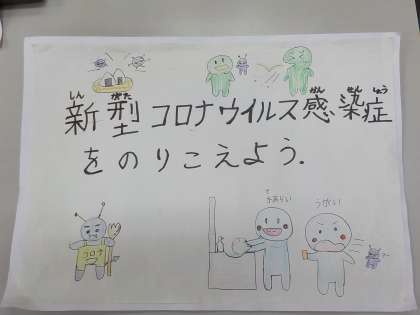 新型コロナウイルス感染症
しん がた かん せん しょう
をのりこえよう.
手あらい
うがい
コロナ